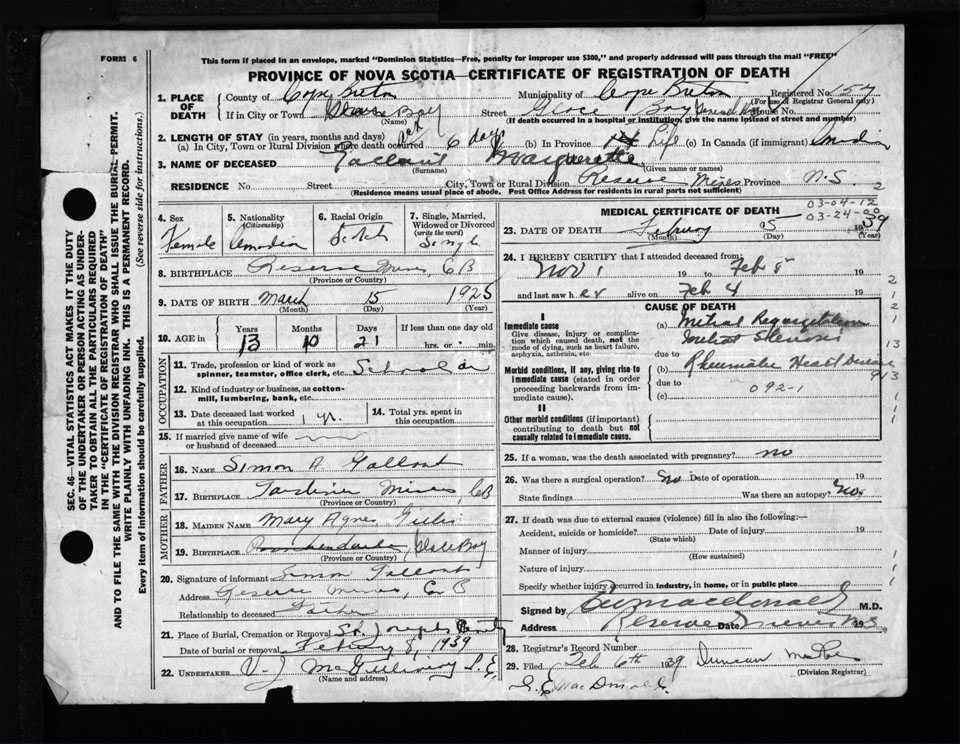 FORM 6
This form if placed in an envelope, marked "Dominion Statistics—Free, penalty for improper use $300," and properly addressed will pass through the mail "FREE"
PROVINCE OF NOVA SCOTIA—CERTIFICATE OF REGISTRATION OF DEATH
1. PLACE OF DEATH
County of Cape Breton Municipality of Cape Breton Registered No. 154
(For use of Registrar General only)
If in City or Town Glace Bay Street Glace Bay General House No.
(Name) (If death occurred in a hospital or institution, give the name instead of street and number)
2. LENGTH OF STAY (in years, months and days)
(a) In City, Town or Rural Division where death occurred 6 days (b) In Province Life (c) In Canada (if immigrant)
3. NAME OF DECEASED Gallant Marguerette
(Surname) (Given name or names)
RESIDENCE No. Street City, Town or Rural Division Reserve Mines Province N.S. 2
(Residence means usual place of abode. Post Office Address for residents in rural parts not sufficient)
4. Sex
Female
5. Nationality (Citizenship)
Canadian
6. Racial Origin
Scotch
7. Single, Married, Widowed or Divorced (write the word)
Single
8. BIRTHPLACE Reserve Mines, C B
(Province or Country)
9. DATE OF BIRTH March 15 1925
(Month) (Day) (Year)
10. AGE in Years Months Days If less than one day old
13 10 21 hrs. or min.
OCCUPATION
11. Trade, profession or kind of work as
spinner, teamster, office clerk, etc. Scholar
12. Kind of industry or business, as cotton-
mill, lumbering, bank, etc.
13. Date deceased last worked at this occupation 1 yr.
14. Total yrs. spent in this occupation
15. If married give name of wife
or husband of deceased
FATHER
16. NAME Simon A. Gallant
17. BIRTHPLACE Mines CB
(Province or Country)
MOTHER
18. MAIDEN NAME Mary Agnes Gillis
19. BIRTHPLACE Glace Bay
(Province or Country)
20. Signature of informant Simon Gallant
Address Reserve Mines, C B
Relationship to deceased Father
21. Place of Burial, Cremation or Removal St. Josephs
Date of burial or removal February 8, 1939
22. UNDERTAKER V. J. McGillivray
(Name and address)
MEDICAL CERTIFICATE OF DEATH
03-04-12
03-24-00
23. DATE OF DEATH February 5 1939
(Month) (Day) (Year)
24. I HEREBY CERTIFY that I attended deceased from:
Nov 1 19 to Feb 5 19
and last saw her alive on Feb 4 19
CAUSE OF DEATH
I
Immediate cause
Give disease, injury or complication which caused death, not the mode of dying, such as heart failure, asphyxia, asthenia, etc
(a) Mitral Regurgitation
Mitral Stenosis
due to
Morbid conditions, if any, giving rise to immediate cause (stated in order proceeding backwards from immediate cause).
(b) Rheumatic Heart Disease
due to 092-1
(c)
II
Other morbid conditions (if important) contributing to death but not causally related to immediate cause.
25. If a woman, was the death associated with pregnancy? no
26. Was there a surgical operation? no Date of operation 19
State findings Was there an autopsy? no.
27. If death was due to external causes (violence) fill in also the following:—
Accident, suicide or homicide? Date of injury 19
(State which)
Manner of injury
(How sustained)
Nature of injury
Specify whether injury occurred in industry, in home, or in public place
Signed by MacDonald M.D.
Address Reserve Mines Date 193
28. Registrar's Record Number
29. Filed Feb 6th 1939 Duncan
(Division Registrar)
MacDonald
SEC. 46—VITAL STATISTICS ACT MAKES IT THE DUTY
OF THE UNDERTAKER OR PERSON ACTING AS UNDER-
TAKER TO OBTAIN ALL THE PARTICULARS REQUIRED
IN THE "CERTIFICATE OF REGISTRATION OF DEATH"
AND TO FILE THE SAME WITH THE DIVISION REGISTRAR WHO SHALL ISSUE THE BURIAL PERMIT.
WRITE PLAINLY WITH UNFADING INK. THIS IS A PERMANENT RECORD.
Every item of information should be carefully supplied. (See reverse side for instructions.)